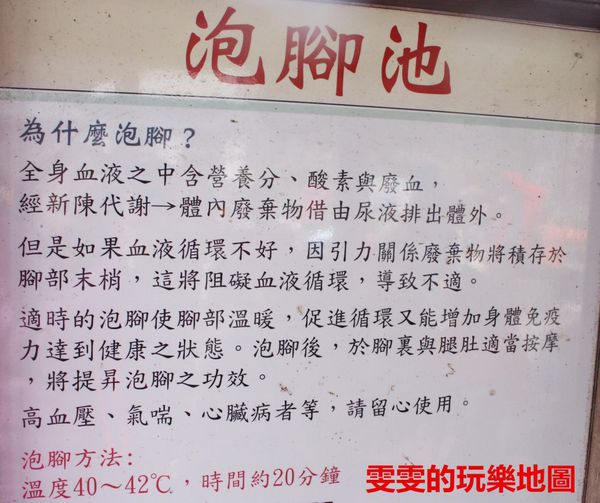 泡腳池
為什麼泡腳？
全身血液之中含營養分、酸素與廢血，
經新陳代謝→體內廢棄物借由尿液排出體外。
但是如果血液循環不好，因引力關係廢棄物將積存於
腳部末梢，這將阻礙血液循環，導致不適。
適時的泡腳使腳部溫暖，促進循環又能增加身體免疫
力達到健康之狀態。泡腳後，於腳裏與腿肚適當按摩
，將提昇泡腳之功效。
高血壓、氣喘、心臟病者等，請留心使用。
泡腳方法:
溫度40～42℃，時間約20分鐘
雯雯的玩樂地圖